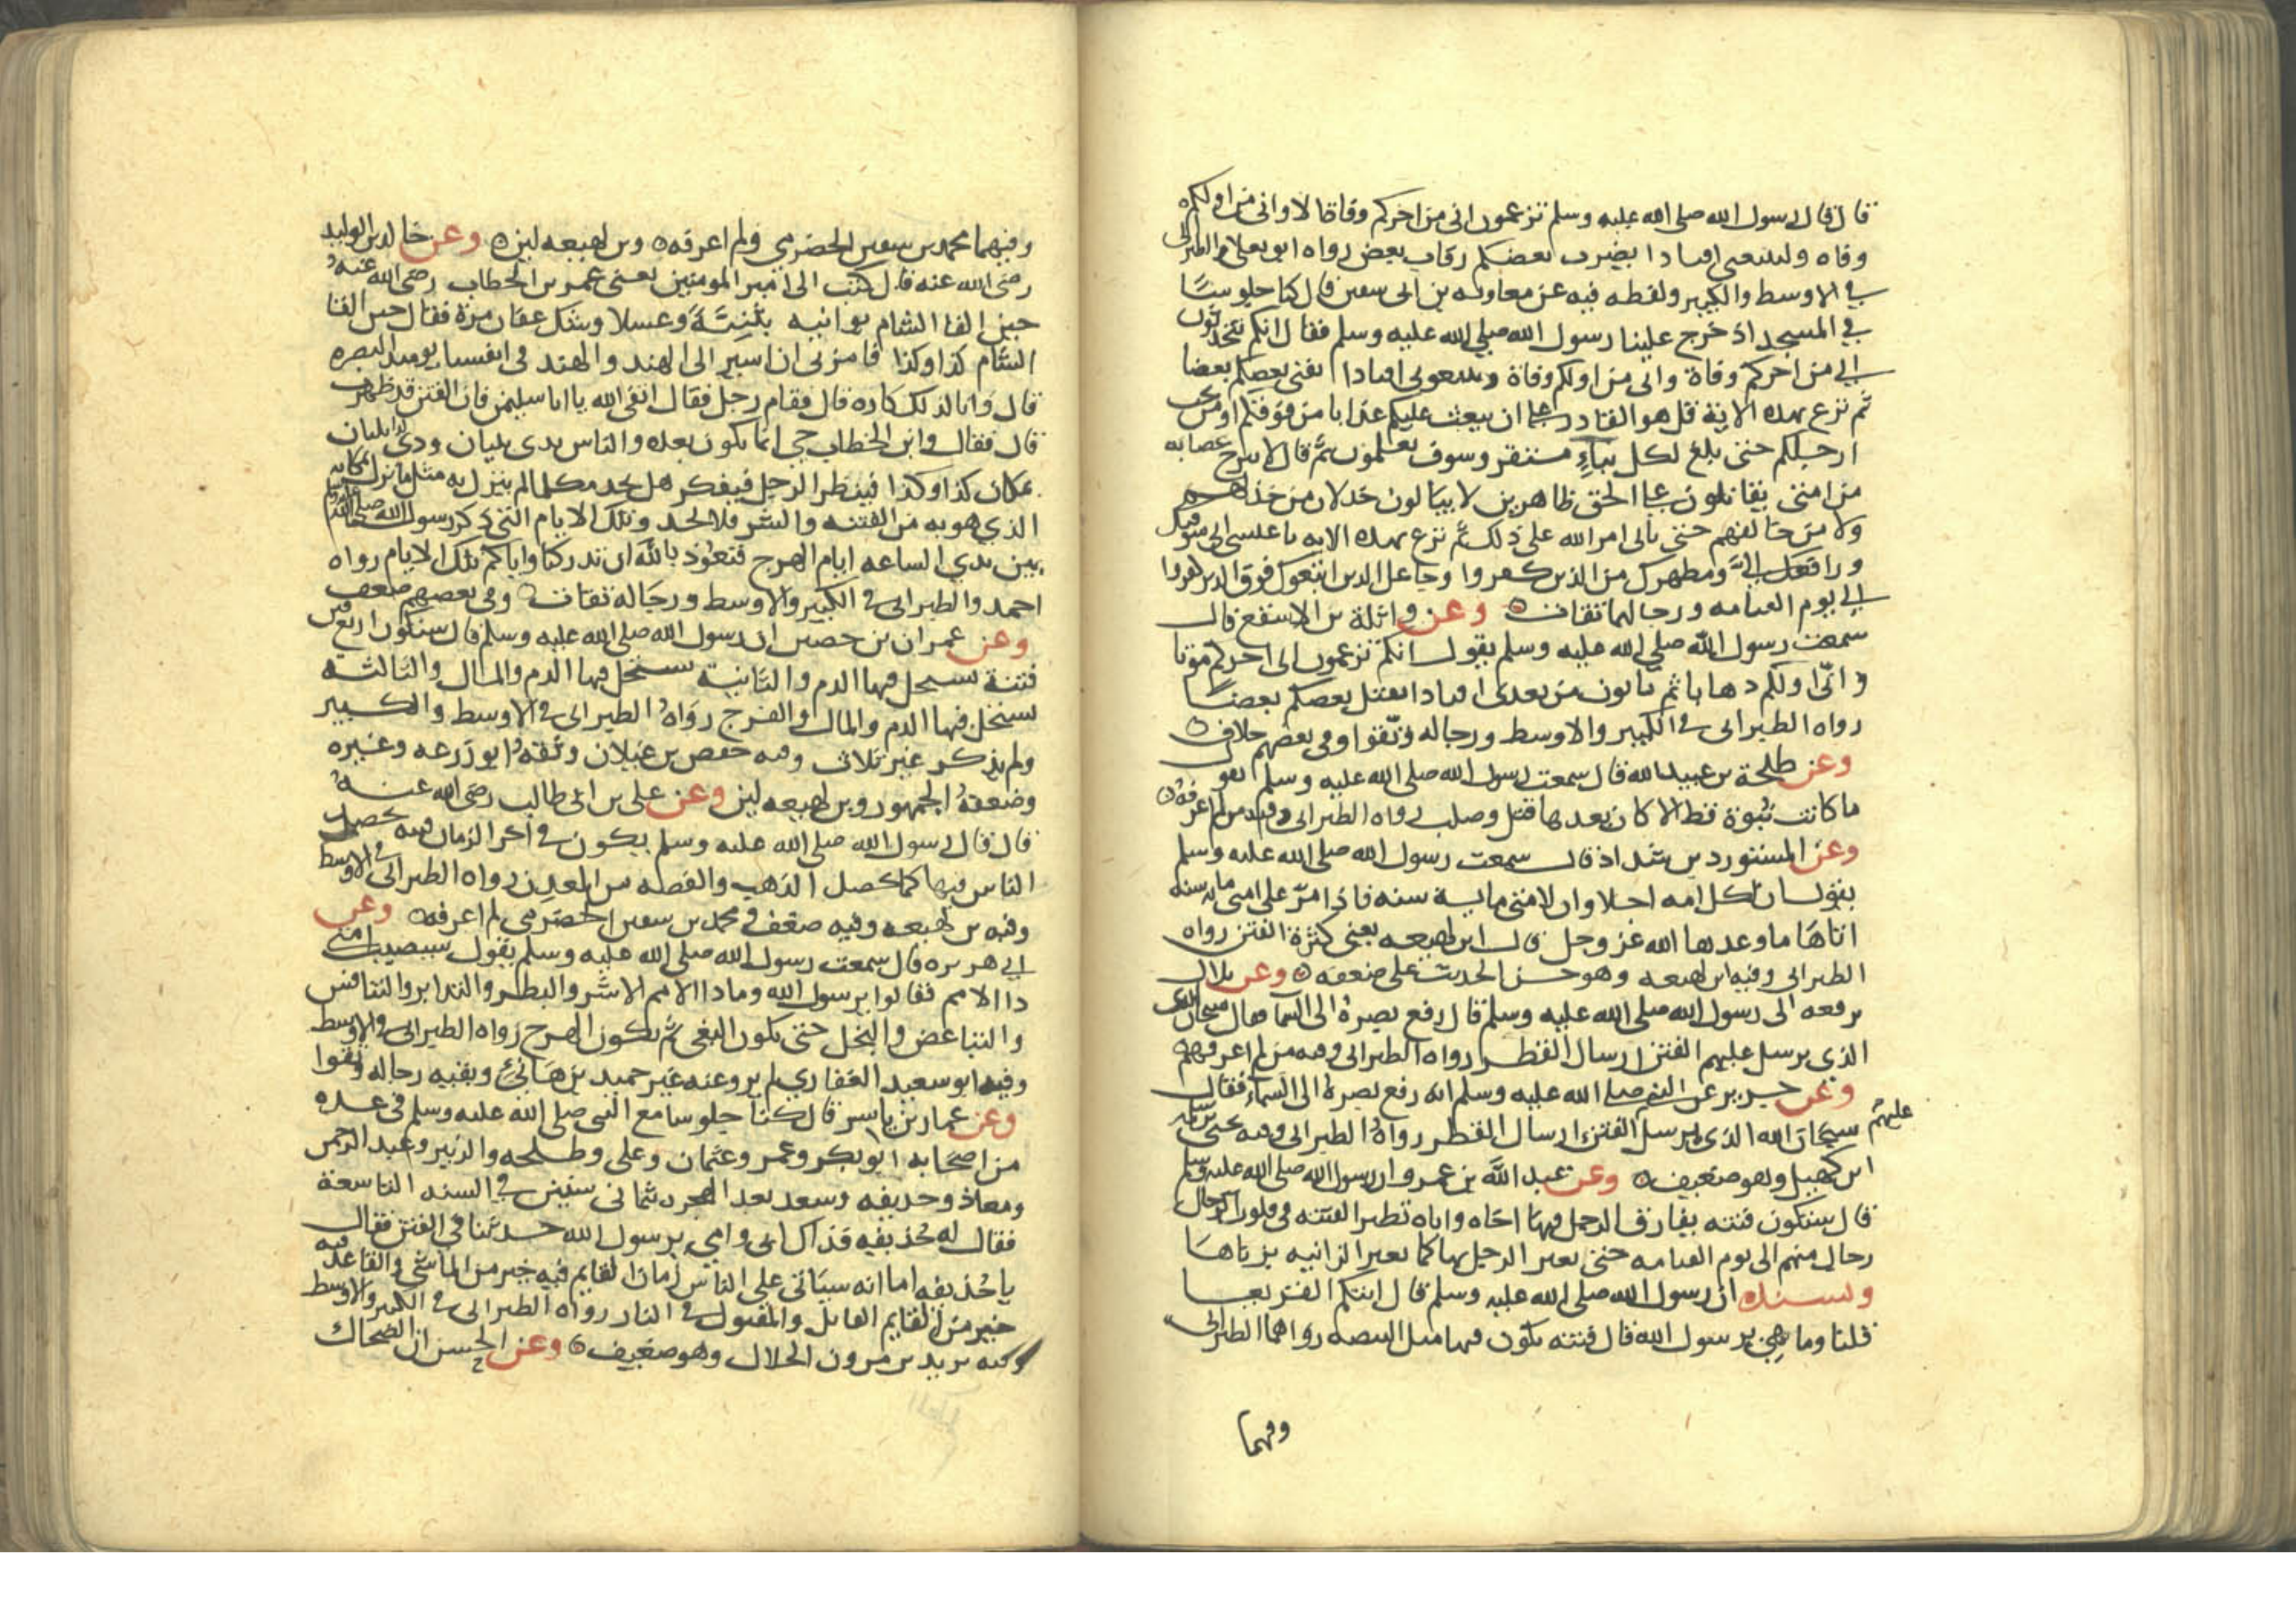 قال قال رسول الله صلى الله عليه وسلم تزعمون اني من اخركم وفاة الا واني من اولكم
وفاه ولتتبعني افنادا يضرب بعضكم رقاب بعض رواه ابو يعلا والطبراني
في الاوسط والكبير ولفظه فيه عن معاويه بن ابي سفين قال كنا جلوسا
في المسجد اذ خرج علينا رسول الله صلى الله عليه وسلم فقال انكم تتحدثون
اني من اخركم وفاة واني من اولكم وفاة وتتبعوني افنادا يفني بعضكم بعضا
ثم نزع بهذه الاية قل هو القادر على ان يبعث عليكم عذابا من فوقكم او من تحت
ارجلكم حتى بلغ لكل نباء مستقر وسوف تعلمون ثم قال لا تبرح عصابه
من امتي يقاتلون على الحق ظاهرين لا يبالون خذلان من خذلهم
ولا من خالفهم حتى ياتي امر الله على ذلك ثم نزع بهذه الايه يا عيسى اني متوفيك
ورافعك الي ومطهرك من الذين كفروا وجاعل الذين اتبعوك فوق الذين كفروا
الى يوم القيامه ورجالهما ثقات وعن واثلة بن الاسقع قال
سمعت رسول الله صلى الله عليه وسلم يقول انكم تزعمون اني اخركم موتا
واني اولكم دهابا ثم تاتون من بعدي افنادا يقتل بعضكم بعضا
رواه الطبراني في الكبير والاوسط ورجاله وثقوا وفي بعضهم خلاف
وعن طلحة بن عبيد الله قال سمعت رسول الله صلى الله عليه وسلم يقول
ما كانت نبوة قط الا كان بعدها قتل وصلب رواه الطبراني وفيه من لم اعرفه
وعن المستورد بن شداد قال سمعت رسول الله صلى الله عليه وسلم
يقول ان لكل امه اجلا وان لامتي ماية سنه فاذا مر على امتي مايه سنه
اتاها ما وعدها الله عز وجل قال ابن لهيعه يعني كثرة الفتن رواه
الطبراني وفيه ابن لهيعه وهو حسن الحديث على ضعفه وعن بلال
يرفعه الى رسول الله صلى الله عليه وسلم قال رفع بصره الى السما فقال سبحان الله
الذي يرسل عليهم الفتن ارسال القطر رواه الطبراني وفيه من لم اعرفهم
وعن جرير عن النبي صلى الله عليه وسلم انه رفع بصره الى السماء فقال
سبحان الله الذي يرسل الفتن ارسال القطر رواه الطبراني وفيه يحيى بن سلمه
عليهم
ابن كهيل وهو ضعيف وعن عبد الله بن عمرو ان رسول الله صلى الله عليه وسلم
قال ستكون فتنه يفارق الرجل فيها اخاه واباه تطير الفتنه في قلوب الرجال
رجال منهم الى يوم القيامه حتى يعير الرجل بها كما تعير الزانيه بزناها
وبسنده ان رسول الله صلى الله عليه وسلم قال اتتكم الفتن
قلنا وما هي يرسول الله قال فتنه تكون فيها مثل البيضه رواهما الطبراني
وفيهما
وفيهما محمد بن سفين الحضرمي ولم اعرفه وبن لهيعه لين وعن خالد بن الوليد
رضى الله عنه قال كتب الى امير المومنين يعني عمر بن الخطاب رضى الله عنه
حين القا الشام بوانيه بثنية وعسلا وشك عفان مرة فقال حين القا
الشام كذا وكذا فامرني ان اسير الى الهند والهند في انفسنا يوميذ البصره
قال وانا لذلك كاره قال فقام رجل فقال اتقي الله يا ابا سليمن فان الفتن قد ظهرت
قال فقال وابن الخطاب حي انما تكون بعده والناس بذي بليان وذي بليان
بمكان كذا وكذا فينظر الرجل فيفكر هل يجد مكانا لم ينزل به مثل ما نزل بمكانه
الذي هو به من الفتنه والشر فلا يجد وتلك الايام التي ذكر رسول الله صلى الله عليه وسلم
بين يدي الساعه ايام الهرج فنعوذ بالله ان تدركنا واياكم تلك الايام رواه
احمد والطبراني في الكبير والاوسط ورجاله ثقات وفي بعضهم ضعف
وعن عمران بن حصين ان رسول الله صلى الله عليه وسلم قال ستكون اربع فتن
فتنة يستحل فيها الدم والثانية يستحل فيها الدم والمال والثالثه
يستحل فيها الدم والمال والفرج رواه الطبراني في الاوسط والكبير
ولم يذكر غير ثلاث وفيه حفص بن غيلان وثقه ابو زرعه وغيره
وضعفه الجمهور وبن لهيعه لين وعن علي بن ابي طالب رضى الله عنه
قال قال رسول الله صلى الله عليه وسلم يكون في اخر الزمان فتنه تحصل
الناس فيها كما تحصل الذهب والفضه من المعدن رواه الطبراني في الاوسط
وفيه بن لهيعه وفيه ضعف ومحمد بن سفين الحضرمي لم اعرفه وعن
ابي هريره قال سمعت رسول الله صلى الله عليه وسلم يقول سيصيب امتي
دا الامم فقالوا يرسول الله وما دا الامم الاشر والبطر والتدابر والتنافس
والتباغض والبخل حتى يكون البغي ثم يكون الهرج رواه الطبراني في الاوسط
وفيه ابو سعيد الغفاري لم يرو عنه غير حميد بن هاني وبقيه رجاله وثقوا
وعن عمار بن ياسر قال كنا جلوسا مع النبي صلى الله عليه وسلم في عده
من اصحابه ابو بكر وعمر وعثمان وعلي وطلحه والزبير وعبد الرحمن
ومعاذ وحذيفه وسعد بعد الهجره ثماني سنين في السنه التاسعة
فقال له حذيفه فداك ابي وامي يرسول الله حدثنا في الفتن فقال
يا حذيفه اما انه سياتي على الناس زمان القايم فيه خير من الماشي والقاعد فيه
خير من القايم القاتل والمقتول في النار رواه الطبراني في الكبير والاوسط
وفيه يزيد بن مروان الخلال وهو ضعيف وعن الحسن ان الضحاك